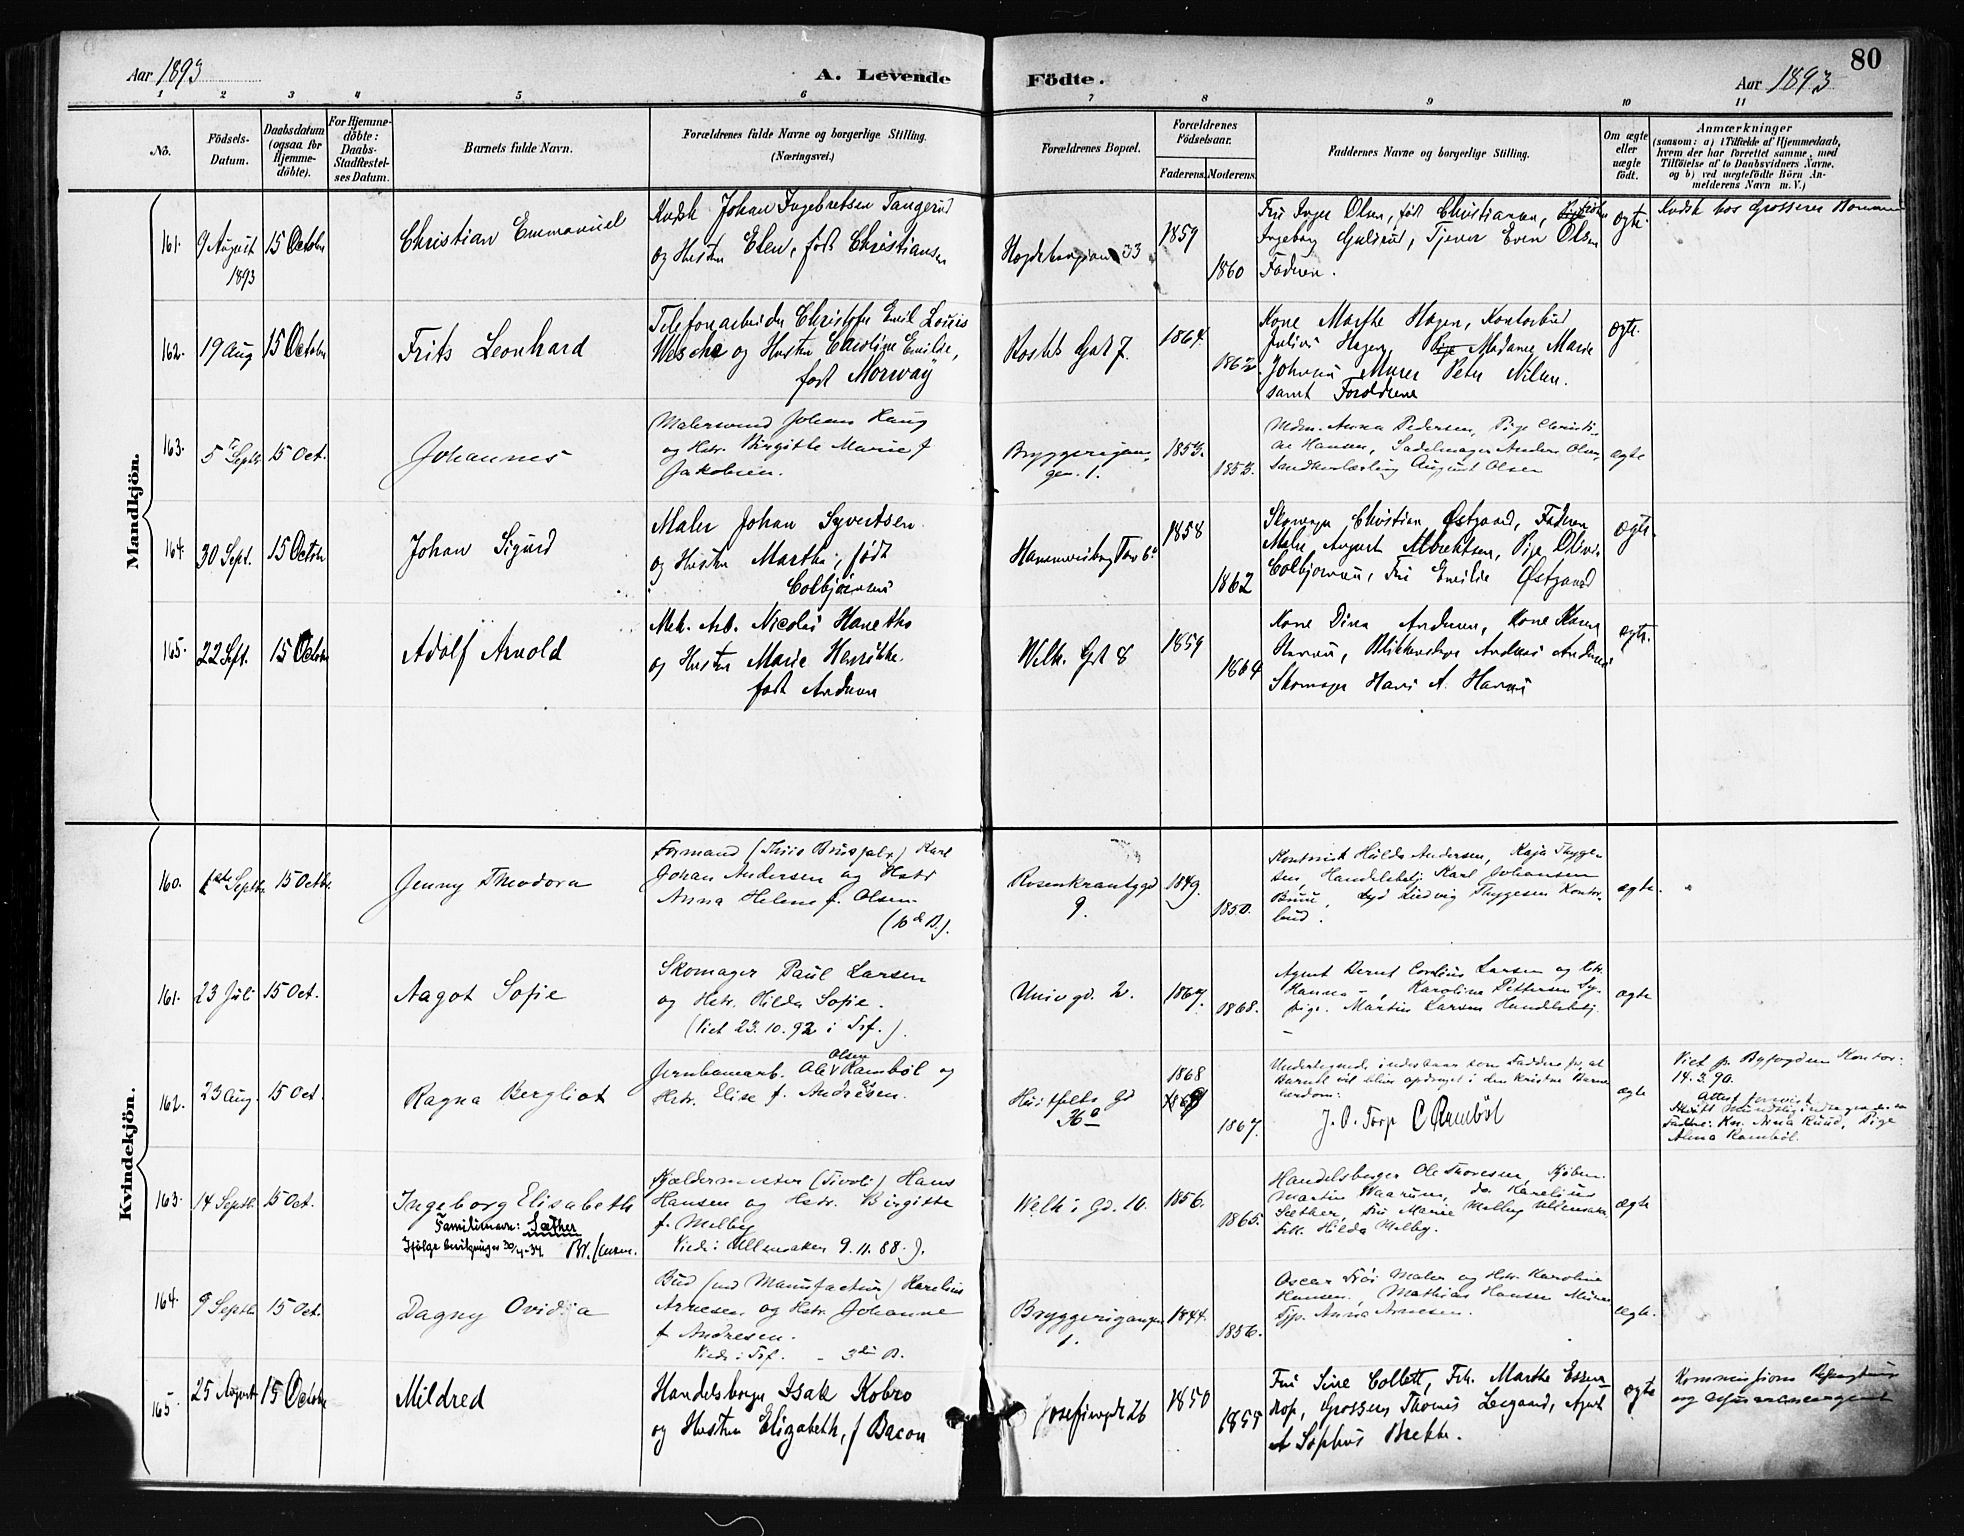 80
Aar 1893
A. Levende
Födte.
Aar 1893
1 2 3 4 5 6 7 8 9 10 11
No.
Födsels-
Datum.
Daabsdatum
(ogsaa for
Hjemme-
döbte).
For Hjemme-
döbte:
Daabs-
Stadfæstel-
ses Datum.
Barnets fulde Navn.
Forældrenes fulde Navne og borgerlige Stilling.
(Næringsvei.)
Forældrenes Bopæl.
Forældrenes
Födselsaar.
Faderens.
Moderens.
Faddernes Navne og borgerlige Stilling.
Om ægte
eller
uægte
födt.
Anmærkninger
(saasom: a) i Tilfælde af Hjemmedaab,
hvem der har forrettet samme, med
Tilföielse af to Daabsvidners Navne,
og b) ved uegtefödte Börn An-
melderens Navn m. V.)
Mandkjön.
161. 9 August 1893
15 Octobr
Christian Emmanuel
Kudsk Johan Ingebretsen Tangerud
og Hustru Elen, født Christiansen
33
1859
1860
Fru Inger Olsen, født Christiansen,
Ingeborg Guldrud, Tjener Even Olsen
Faderen.
ægte
Kudsk hos Grosserer
162. 19 Aug
15 Octobr
Frits Leonhard
Telefonarbeider Christoffer Emil Louis
Wesche og Hustru Caroline Emilie,
født Morway
Gade 7.
1864.
1862.
Kone Marthe Hagen, Kontorbud
Julius Hagen, Madame Marie
Murer Peter Nilsen.
samt Forældrene
ægte
163. 5 Septbr.
15 Oct.
Johannes
Malersvend Johans Haug
og Hstr. Birgitte Marie f.
Jakobsen.
Bryggerigan-
gen. 1.
1853.
1853.
Mdm. Anna Pedersen, Pige Christi-
ne Hansen, Sadelmager Anders Olsen,
August Olsen
ægte
164. 30 Sept.
15 Octobr
Johan Sigurd
Maler Johan Syvertsen
og Hustru Marthe, født
Colbjørnsen
Hammersborg Torv 6
1858
1862
Skomager Christian Østgaard, Faderen
Maler August Albrektsen, Pige Olivia
Colbjørnsen, Fru Emilie Østgaard
ægte.
165. 22 Sept.
15 Octobr
Adolf Arnold
Mek. Arb. Nicolai
og Hustru Marie Henrikke
født Andersen
Welh. Gd. 8
1859
1864
Kone Dina Andersen, Kone
Hansen, Blikkenslager Andreas Andersen
Skomager Hans A. Hansen
ægte.
Kvindekjön.
160. 1ste Septbr
15 Octbr.
Jenny Theodora
Formand Karl
Johan Andersen og Hstr
Anna Helene f. Olsen.
(10de B.).
Rosenkrantzgd
9.
1849.
1850.
Kontorist Hulda Andersen, Kaja Thyge-
sen, Handelsbetj. Karl Johansen
Ludvig Thygesen Kontor-
bud.
ægte.
161. 23 Juli
15 Oct.
Aagot Sofie
Skomager Paul Larsen
og Hstr. Hilda Sofie.
(Viet 23.10.92 i Trf.).
Univ gd. 2.
1867.
1868.
Agent Bernt Cornelius Larsen og Hstr.
Hanna, Karoline Pettersen Sy-
pige. Martin Larsen Handelsbetj.
ægte
162. 23 Aug.
15 Oct.
Ragna Bergliot
Jernbanearb. Olaf Olsen Rambøl og
Hstr. Elise f. Andresen.
Huitfelts Gd
1868
1867.
Undertegnede indestaar som Faddere for, at
Barnet vil blive opdraget i den kristne Barne
lærdom:
J. O. Torp C Rambøl
ægte
Viet pr. Byfogdens Kontor.
14.3.90.
Attest
Faddere: Kn. Anna Ruud, Pige
Alma Rambøl.
163. 14 Septbr.
15 Oct.
Ingeborg Elisabeth
Familienavn: Sæther
Ifølge bevilgning 30/4-34.
Kjældermester (Tivoli) Hans
Hansen og Hstr. Birgitte
f. Melby
Viede i Ullensaker 9.11.88.).
Welh. Gd. 10.
1856.
1865.
Handelsborger Ole Thoresen, Kjøbm.
Martin Waarum, do. Karelius
Sæther, Fru Marie Melby Ullensaker
Frk. Hilda Melby.
ægte
164. 9 Septbr.
15 Oct.
Dagny Ovidia
Bud (ved Manufactur) Karelius
Arnesen og Hstr. Johanne
f. Andresen.
Viede i Trf. - 3die B.
Bryggerigangen
1.
1844.
1856.
Oscar Maler og Hstr. Karoline
Hansen. Mathias Hansen Murer
Tjp. Anna Arnesen.
ægte.
165. 25 August
15 Octobr
Mildred
Handelsborger Isak Kobro
og Hustru Elizabeth, f Bacon
Josefinegd 26
1850
1855
Fru Sine Collett, Frk. Marthe Essen-
drop, Grosserer Thomas Agent
A Sophus Brekke.
ægte
Kommissions
og